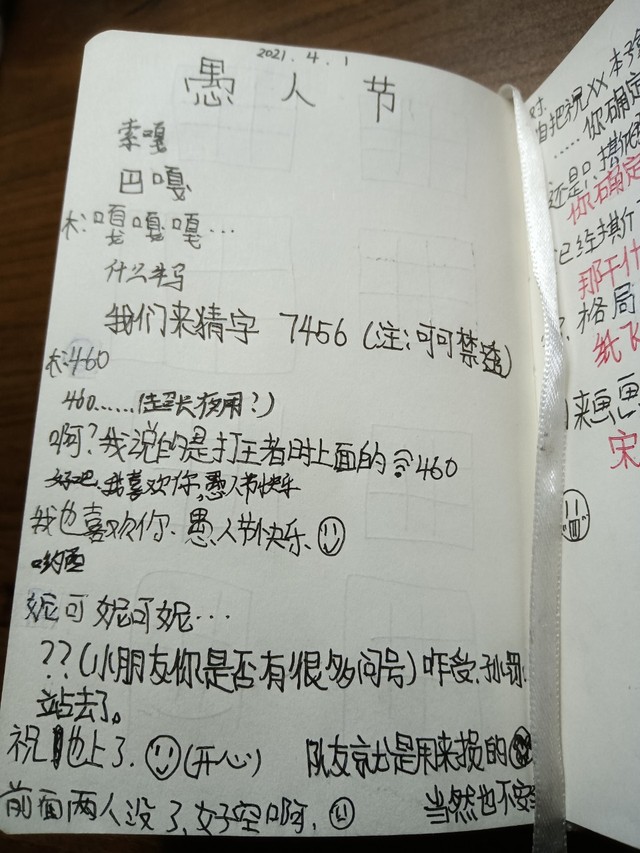 2021.4.1
愚人节
索嘎
巴嘎
木:嘎嘎嘎…
什么半马
我们来猜字 7456 (注:可可禁
木:460
460……(超长夜用?)
啊?我说的是打王者时上面的 460
好吧,我喜欢你,愚人节快乐
我也喜欢你.愚人节快乐.
哟西
妮可妮可妮…
??(小朋友你是否有很多问号)咋受.孙
站去了。
祝 他上了.(开心) 队友就是用来损的
前面两人没了,好空啊. 当然也不安
自把祝XX本
……你确定
还是只撕
你确定
已经撕了
那干什
格局
纸飞
来画画
宋